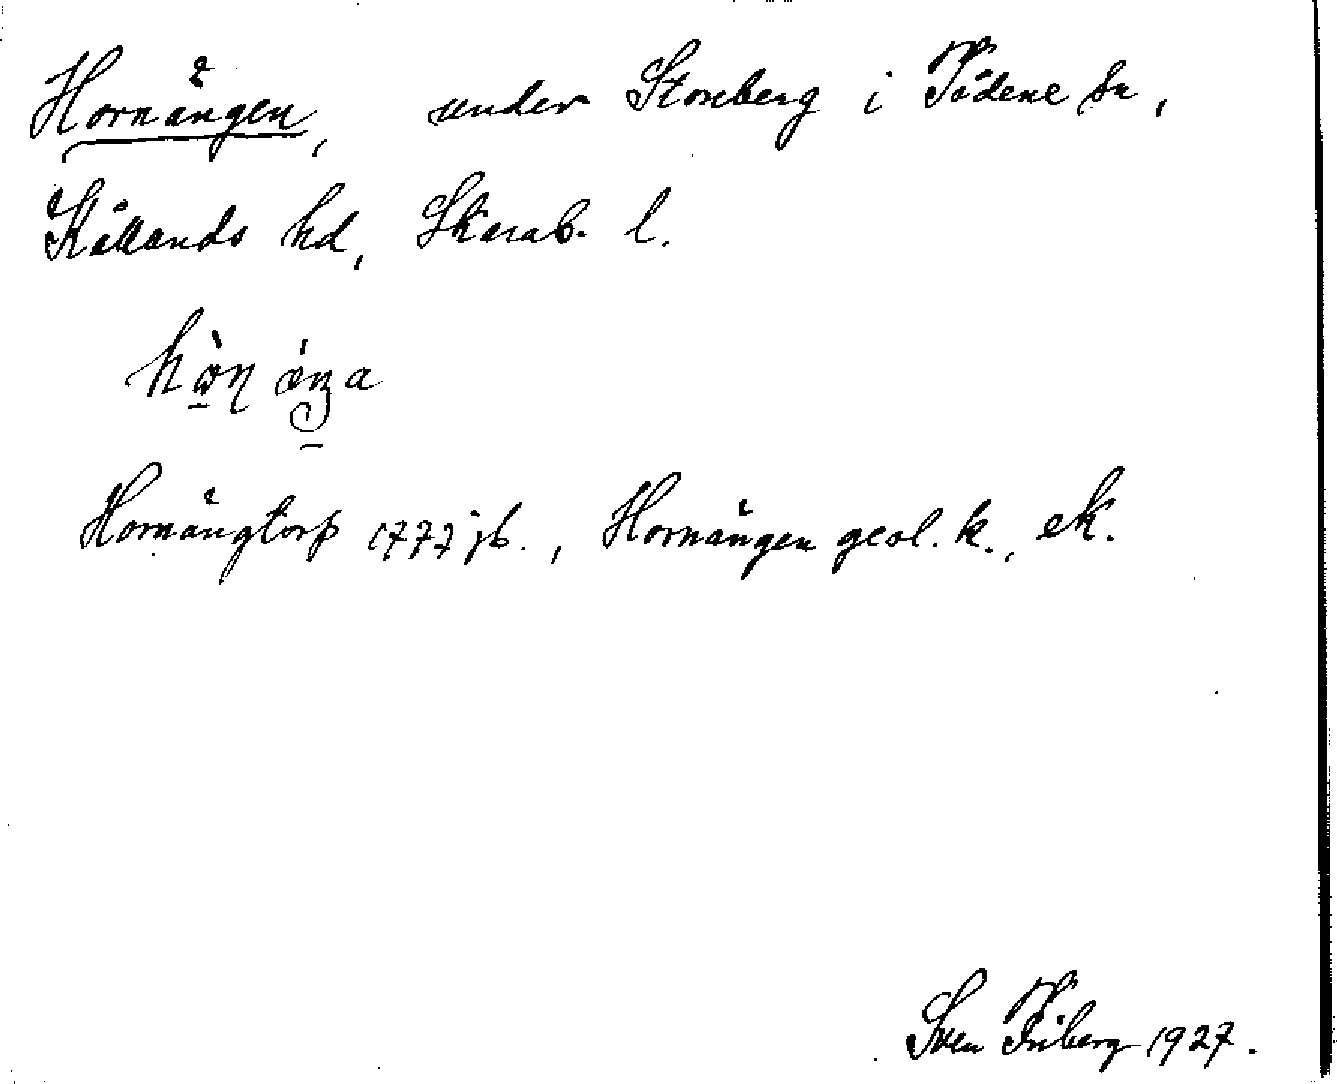 Hornängen, under Storeberg i Tådene sn,
Kållands hd, Skarab. l.
Hornängtorp 1777 jb., Hornängen geol. k., ek.
Sven Friberg 1927.